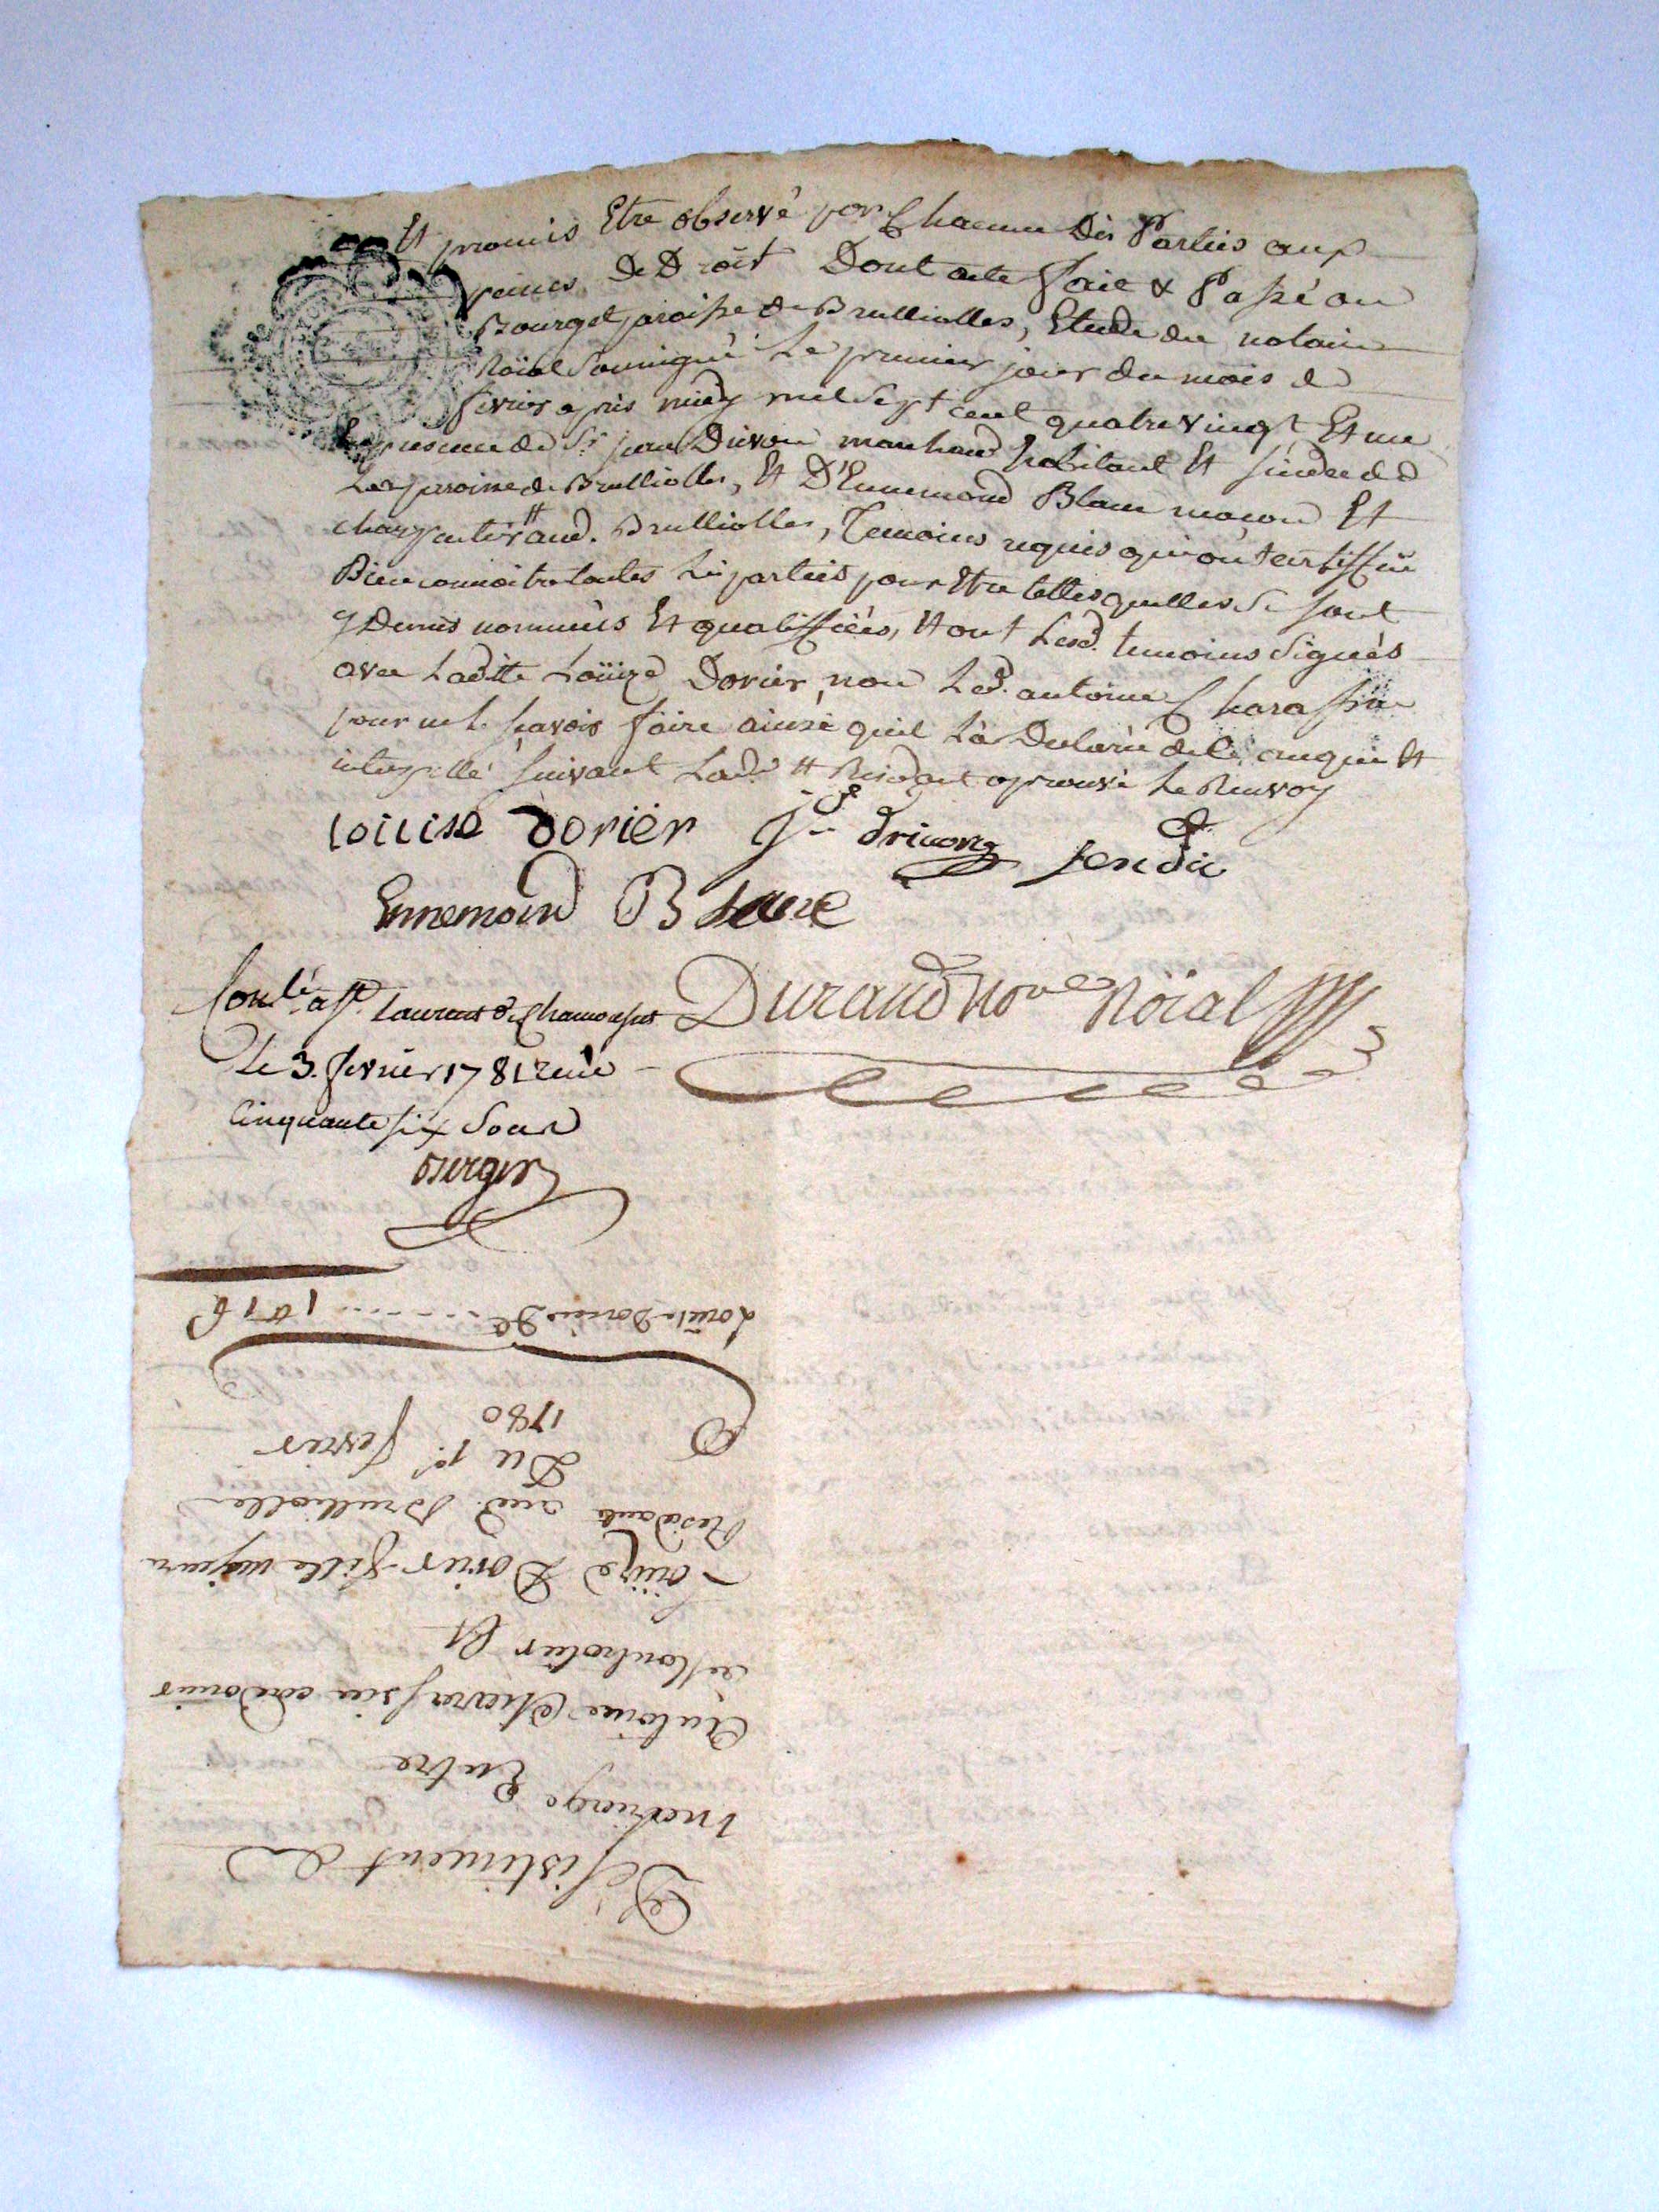 Et promis Etre observé par Chacune Des Parties aux
peines De Droit Dont acte Fait & Passé au
Bourg et paroisse de Brulliolles, Etude du notaire
Roïal Soussigné Le premier jour du mois de
fevrier après midy mil Sept cent quatre vingt Et un
En presence de Sr. jean marchand habitant Et sindic de
Lad. paroisse de Brulliolles, Et D'Ennemond Blanc maçon Et
charpentier aud. Brulliolles, Temoins requis qui ont certiffié
Bien connoitre toutes Les parties pour Etre telles quelles se sont
cy Dessus nommées Et qualiffiées, Et ont Lesd. temoins signés
avec Laditte Loüize Dorier, non Led. antoine Charassin
pour ne le sçavoir faire ainsi quil L'a Declaré de ce enquis Et
interpellé suivant Lord. Et aprouvé Le Renvoy
louise dorier sendic
Ennemond Blanc
Durand No.re Roïal
Conlé. a St. Laurent de Chamousset
Le 3. fevrier 1781 reçu
Cinquante six Sous
Berger
Desistiment de
mariage Entre
Antoine Charassin cordonnier
de Montrotier Et
Loüize Dorier fille majeure
Residante aud. Brulliolle
Du 1er. fevrier
1780
Loüise Dorier